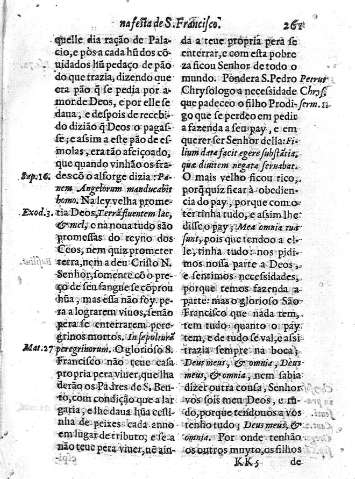 na festa de S. Francisco. 261
quelle dia ração de Pala-
cio, e pòs a cada hũ dos cõ
uidados hũ pedaço de pão
do que trazia, dizendo que
era pão q̃ se pedia por a-
mor de Deos, e por elle se
daua, e despois de recebi-
do dizião q̃ Deos o pagas-
se; e assim a este pão de es-
molas, era tão afeiçoado,
que quando vinhão os fra-
Sap. 16. des cõ o alforge dizia: Pa-
nem Angelorum manducabit
homo. Na ley velha prome-
Exod. 3. tia Deos, Terrã fluentem lac,
& mel, e na noua tudo são
promessas do reyno dos
Ceos, nem quiz prometer
terra, nem a deu Cristo N.
Senhor, somente cõ o pre-
ço de seu sangue se cõprou
hũa, mas essa não foy pe-
ra a lograrem viuos, senão
pera se enterrarem pere-
grinos mortos. In sepulturã
Mat. 27 peregrinorum. O glorioso S.
Francisco não teue casa
propria pera viuer, que lha
derão os Padres de S. Ben-
to, com condição que a lar
garia, e lhe daua hũa cesti-
nha de peixes cada anno
em lugar de tributo; e se a
não teue pera viuer, nẽ ain-
da a teue propria pera se
enterrar, e com esta pobre
za ficou Senhor de todo o
mundo. Põdera S. Pedro Petrus
Chrysologo a necessidade Chrys.
que padeceo o filho Prodi- serm. 1.
go que se perdeo em pedir
a fazenda a seu pay, e em
querer ser Senhor della:
que dinitem negata seruabat.
O mais velho ficou rico,
porq̃ quiz ficar à obedien-
cia do pay, porque com o
ter tinha tudo, e assim lhe
disse o pay; Mea omnia tua
sunt, pois que tendoo a el-
le, tinha tudo: nos pidi-
mos nossa parte a Deos,
e sentimos necessidades,
porque temos fazenda a
parte: mas o glorioso São
Francisco que nada tem,
tem tudo quanto o pay
tem, e de tudo se val, e assi
trazia sempre na boca;
Deus meus, & omnia, Deus
meus, & omnia, nem sabia
dizer outra cousa, Senhor
vòs sois meu Deos, e tu-
do, porque tendouos a vòs
tenho tudo; Deus meus, &
omnia. Por onde tenhão
os outros muyto, os filhos
K k 5 de